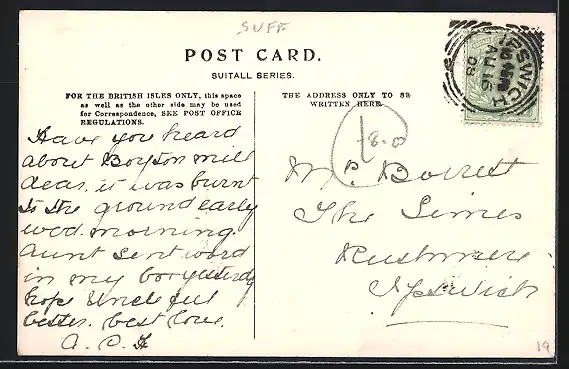 SUFF
POST CARD.
SUITALL SERIES.
FOR THE BRITISH ISLES ONLY, this space
as well as the other side may be used
for Correspondence, SEE POST OFFICE
REGULATIONS.
Have you heard
about Boyton mill
dear. it was burnt
to the ground early
wed. morning.
Aunt sent word
in my box yesterday
hope Uncle feel
better. best love.
A. C. F
THE ADDRESS ONLY TO BE
WRITTEN HERE.
IPSWICH
AU 16
03
Borrett
The Limes
Rushmere
Ipswich
19